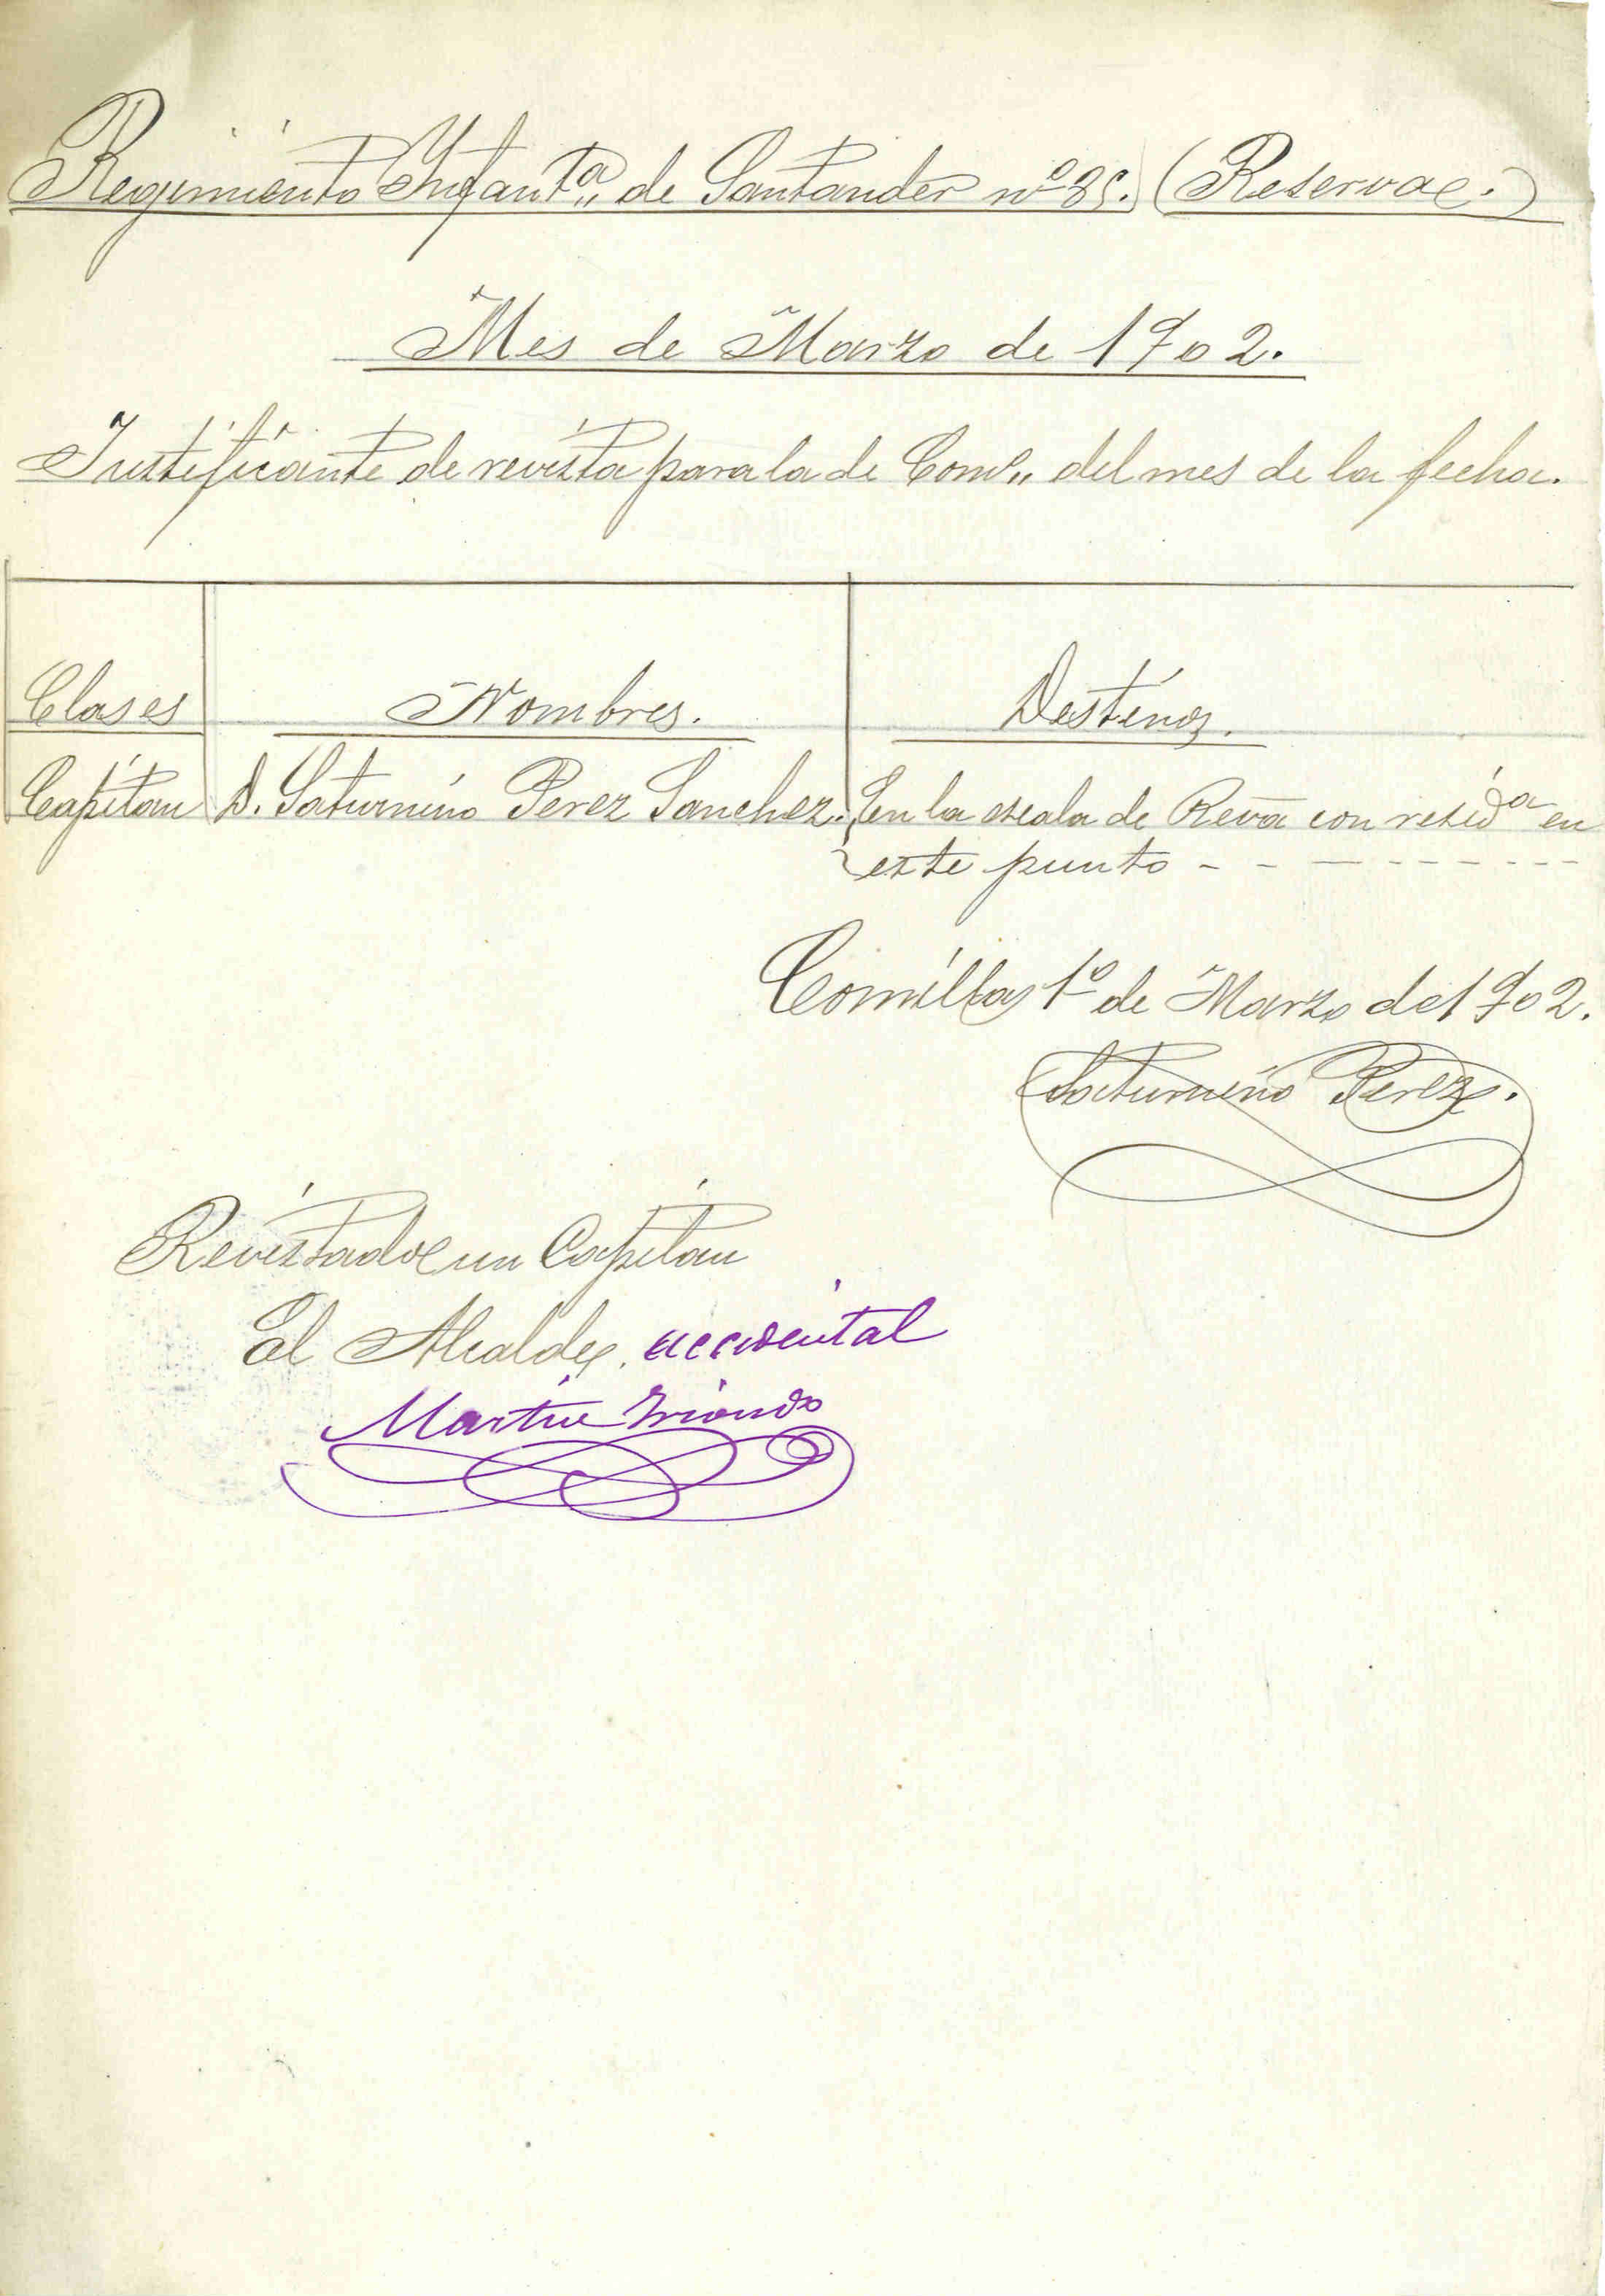 Regimiento Infantª, de Santander nº 85. (Reserva.)
Mes de Marzo de 1902.
Justificante de revista para la de Comº,, del mes de la fecha.
Clases Nombres. Destinos.
Capitan D. Saturnino Perez Sanchez. En la escala de Reva con residª en
este punto - - - - - - - - -
Comillas 1º de Marzo de 1902.
Saturnino Perez.
Revistado un Capitan
El Alcalde, accidental
Martin